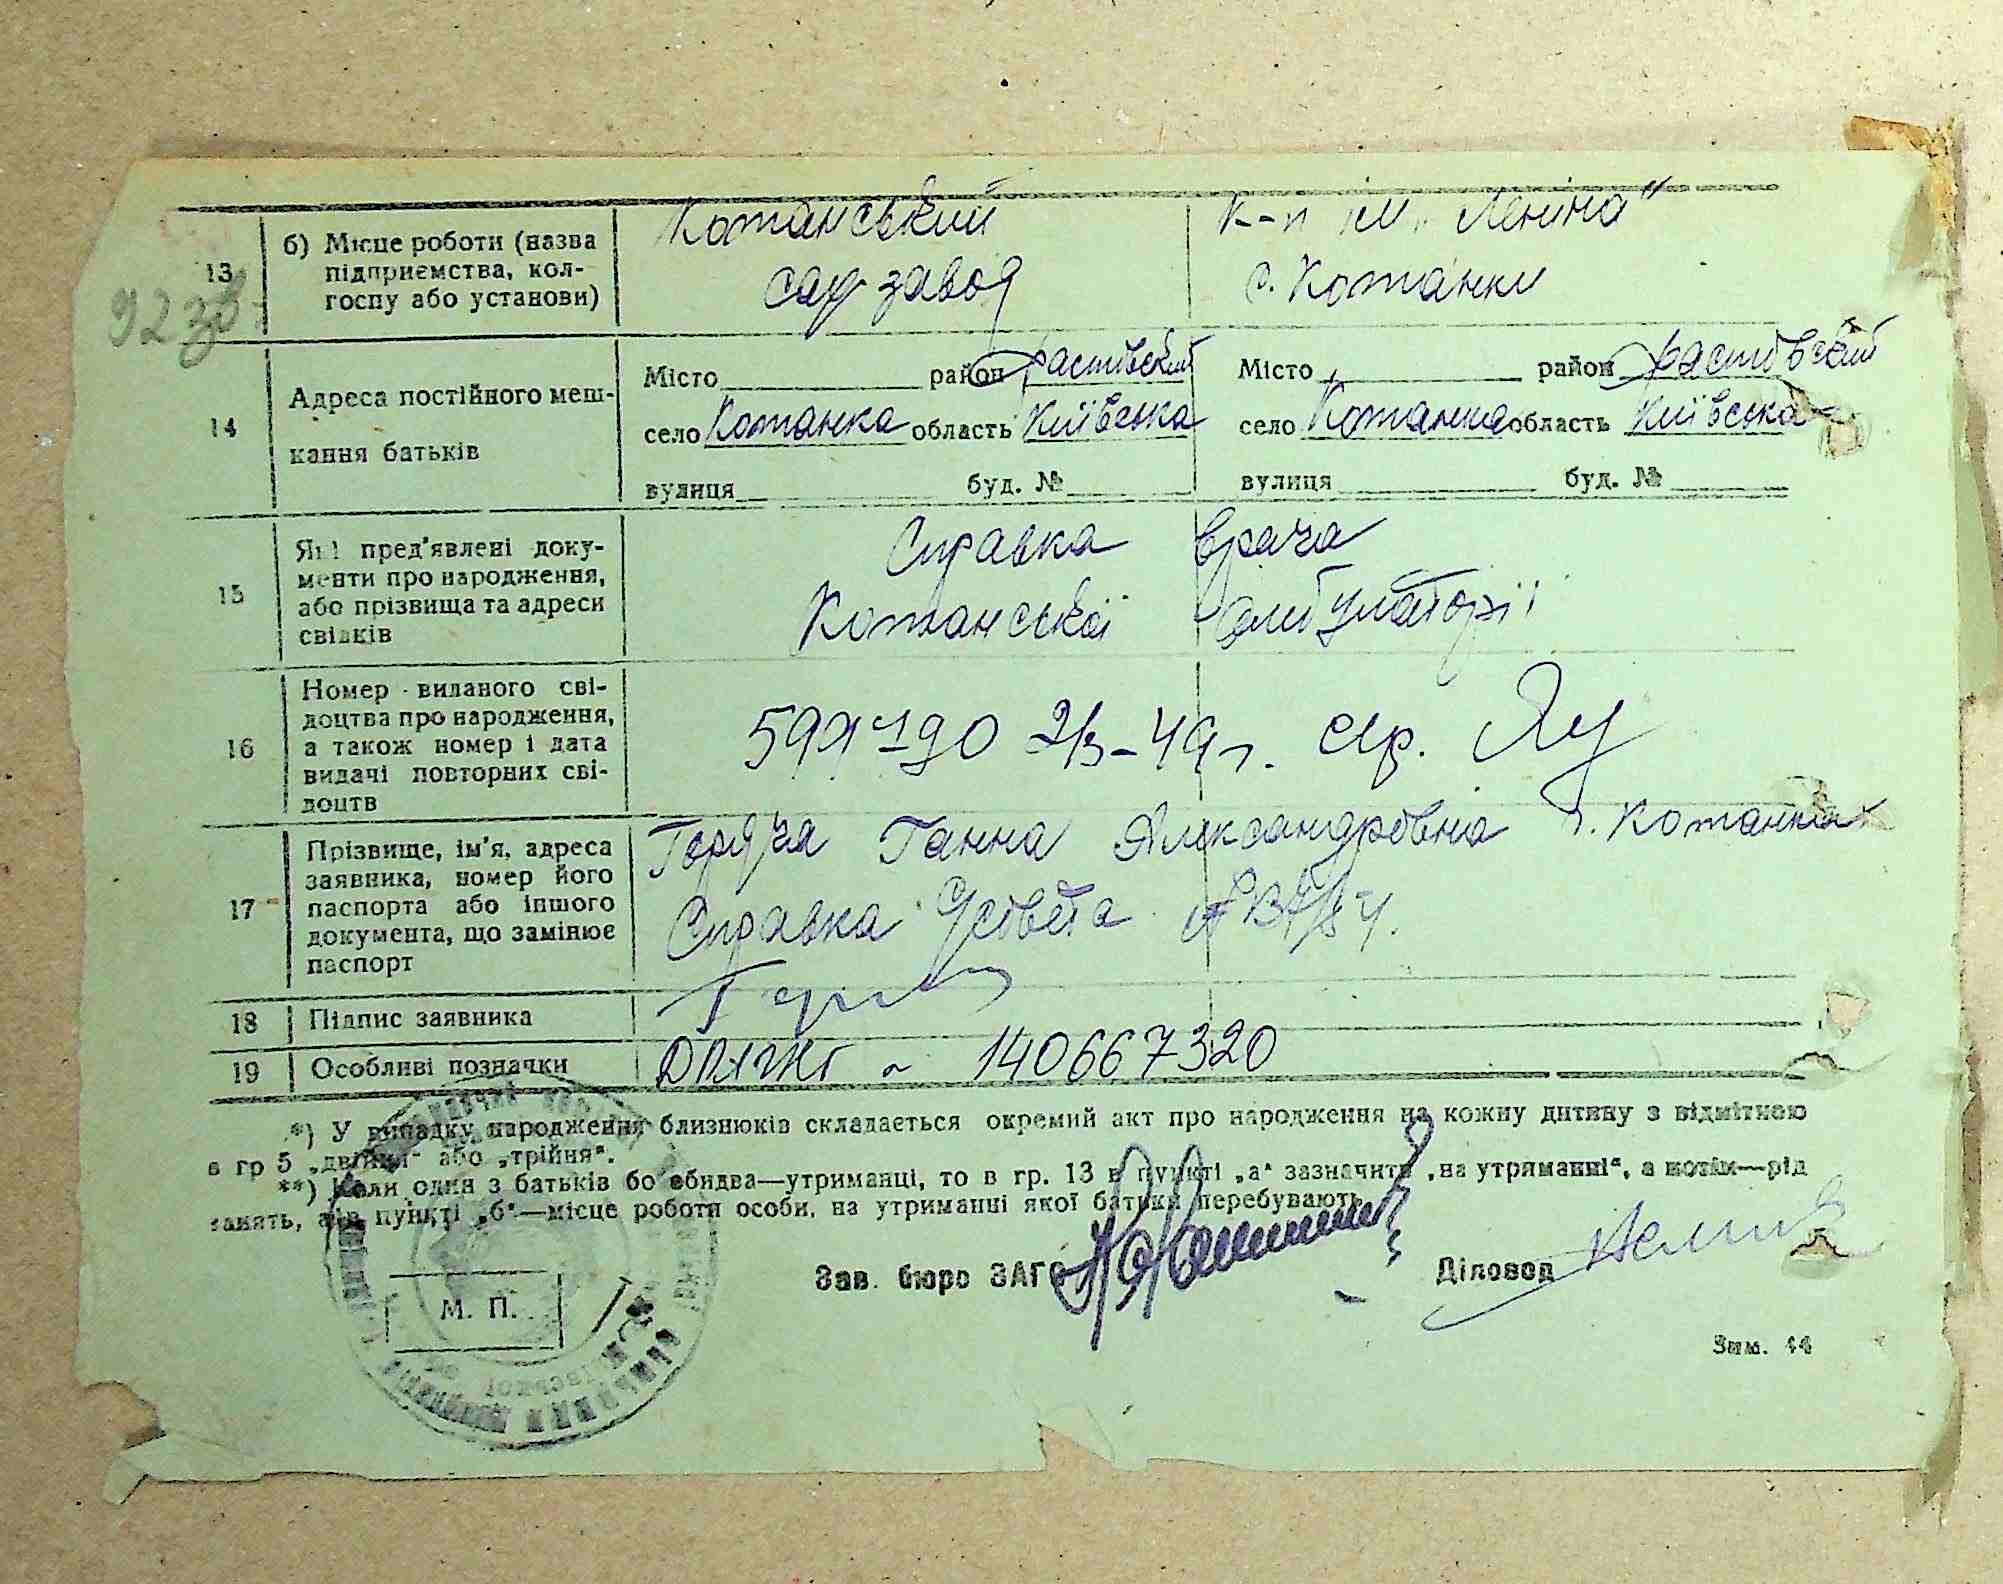 92 зв
13 б) Місце роботи (назва підприємства, колгоспу або установи)
Кожанський
сах завод
к-п ім. „Леніна“
с. Кожанки
14 Адреса постійного мешкання батьків
Місто район Фастівский
село Кожанка область Київська
вулиця буд. №
Місто район Фастівский
село Кожанка область Київська
вулиця буд. №
15 Які пред'явлені документи про народження, або прізвища та адреси свідків
Справка врача
Кожанської амбулаторії
16 Номер виданого свідоцтва про народження, а також номер і дата видачі повторних свідоцтв
2/3-49 г. сер. ЯУ
17 Прізвище, ім'я, адреса заявника, номер його паспорта або іншого документа, що замінює паспорт
Горяча Ганна Александровна с. Кожанка
Справка
18 Підпис заявника
19 Особливі позначки
ДРАЦСГ - 140667320
*) У випадку народження близнюків складається окремий акт про народження на кожну дитину з відміткою
в гр 5 „двійня“ або „трійня“.
**) Коли один з батьків бо обидва—утриманці, то в гр. 13 в пункті „а“ зазначити „на утриманні“, а потім—рід
занять, а в пункті „б“—місце роботи особи, на утриманні якої батьки перебувають
Зав. бюро ЗАГС
Діловод
М. П.
Зам. 44